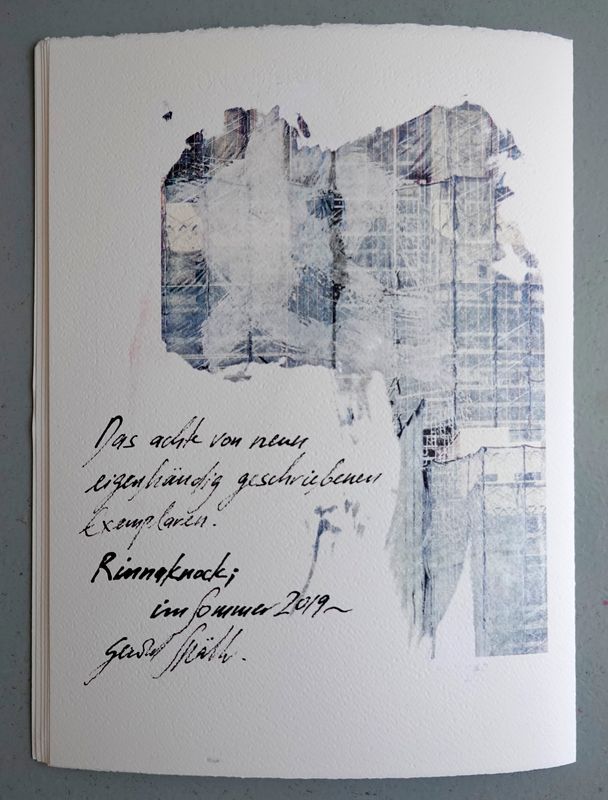 Das achte von neun
eigenhändig geschriebenen
Exemplaren.
Rinnaknock;
im Sommer 2019~
Gerold Späth.